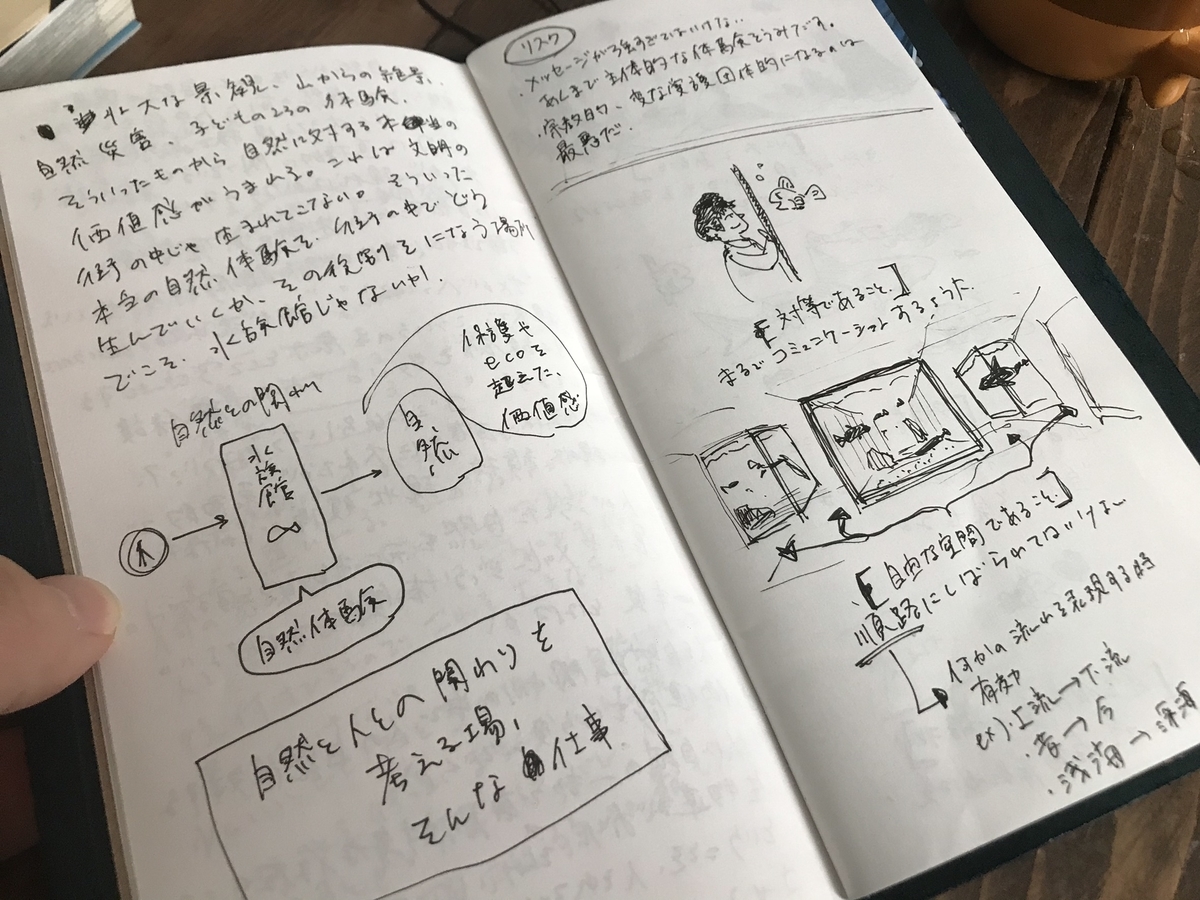 壮大な景観、山からの絶景、
自然災害、子どものころの体験、
そういったものから自然に対する本当の
価値感がうまれる。これは文明の
街の中じゃ生まれてこない。そういった
本当の自然体験を、街の中でどう
生んでいくか、その役割をになう場所
でこそ、水族館じゃないか!
自然との関わり
保護や
ecoを
超えた、
価値感
自然
水族館
人
自然体験
自然と人との関わりを
考える場、
そんな仕事
リスク
・メッセージが強すぎてはいけない。
あくまで主体的な体験そうみです。
・宗教的、変な愛護団体的になるのは
最悪だ。
対等であること。
まるでコミュニケーションするような。
自由な空間であること。
順路にしばられてはいけない
何かの流れを表現する時
有効
ex).上流→下流
・昔→今
・浅海→深海